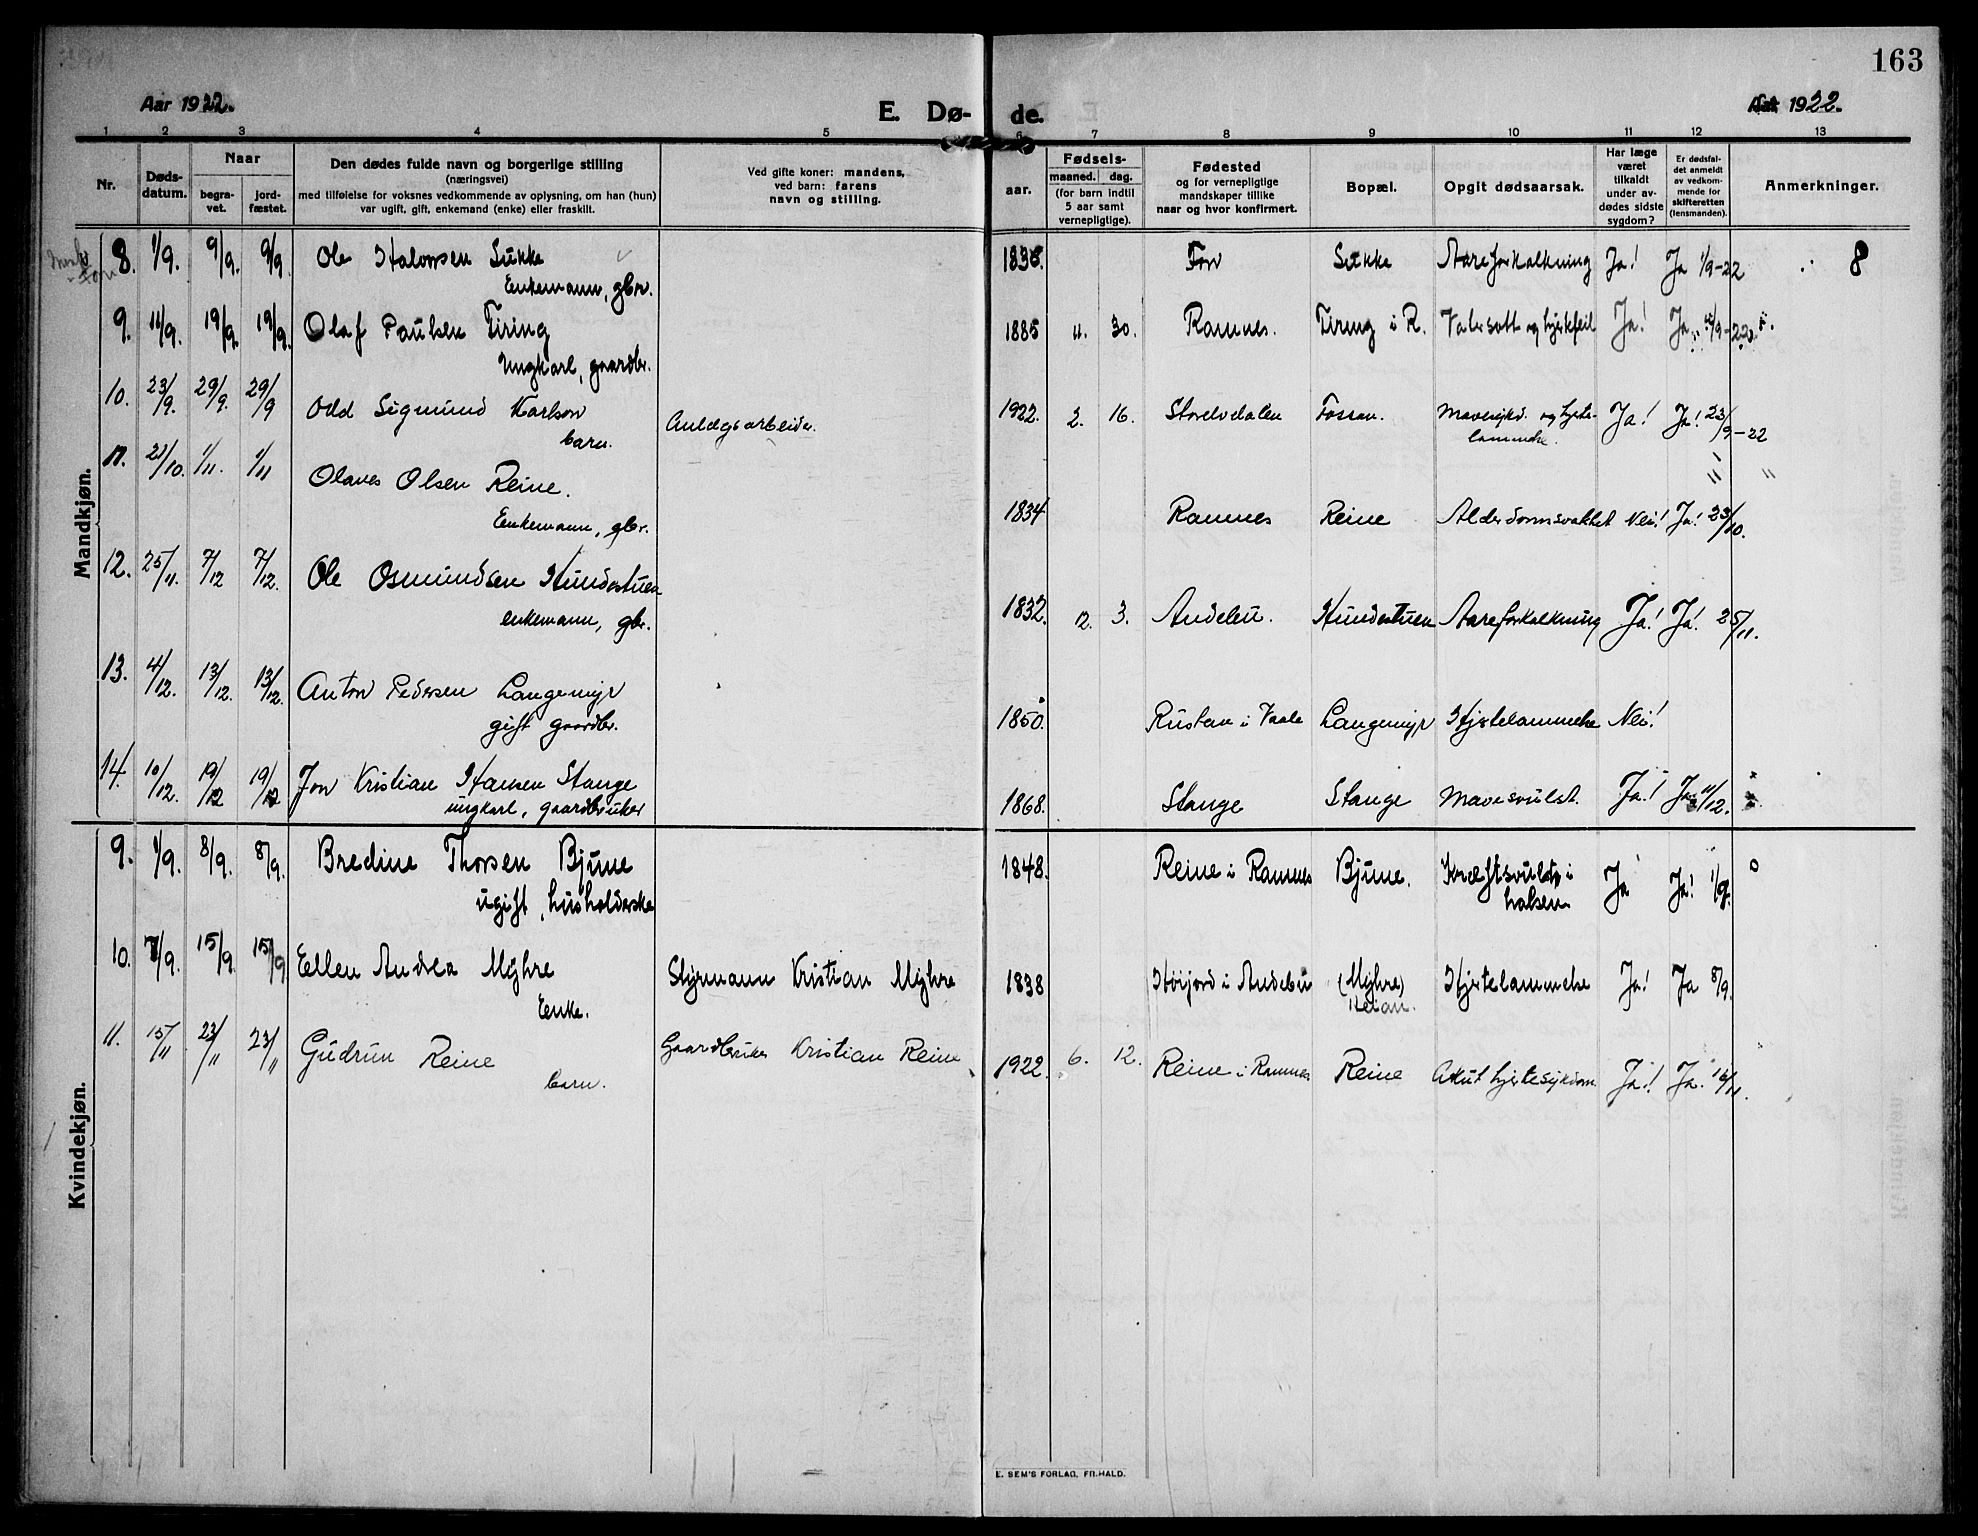 163
Aar 1922.
E. Dø-
de.
Aar 1922.
1 2 3 4 5 6 7 8 9 10 11 12 13
Nr.
Døds-
datum.
Naar
begra-
vet.
jord-
fæstet.
Den dødes fulde navn og borgerlige stilling
(næringsvei)
med tilføielse for voksnes vedkommende av oplysning, om han (hun)
var ugift, gift, enkemand (enke) eller fraskilt.
Ved gifte koner: mandens,
ved barn: farens
navn og stilling.
Fødsels-
aar.
maaned. dag.
(for barn indtil
5 aar samt
vernepligtige).
Fødested
og for vernepligtige
mandskaper tillike
naar og hvor konfirmert.
Bopæl.
Opgit dødsaarsak.
Har læge
været
tilkaldt
under av-
dødes sidste
sygdom?
Er dødsfal-
det anmeldt
av vedkom-
mende for
skifteretten
(lensmanden).
Anmerkninger.
Mandkjøn.
8. 1/9. 9/9. 9/9. Ole Halvorsen Sukke
Enkemann, gbr.
1836. Fon Sukke Aareforkalkning Ja! Ja 1/9-22 8
9. 11/9. 19/9. 19/9. Olaf Paulsen Firing
Ungkarl, gaardbr.
1885 11. 30. Ramnes. Firing i R. Vatersott og hjertfeil Ja! Ja
10. 23/9. 29/9. 29/9 Odd Sigmund Karlson
barn.
Anlægsarbeider.
1922. 2. 16. Storelvdalen Fossan. Mavesykd. og hjerte-
lammelse. Ja! Ja! 23/9-22
11. 21/10. 1/11. 1/11 Olaves Olsen Reine.
Enkemann, gbr.
1834 Ramnes Reine Alderdomsvakhet Nei! Ja! 23/10.
12. 25/11. 7/12 7/12. Ole Osmundsen Hundstuen
enkemann, gbr.
1832. 12. 3. Andebu. Hundstuen Aareforkalkning Ja! Ja! 25/11.
13. 4/12. 13/12. 13/12. Anton Pedersen Langemyr
gift gaardbr.
1850. Rustan i Vaale Langemyr Hjertelammelse Nei!
14. 10/12. 19/12 19/12 Jon Kristian Hansen Stange
ungkarl, gaardbruker
1868. Stange Stange Mavesvulst. Ja! Ja 11/12.
Kvindekjøn.
9. 1/9. 8/9. 8/9. Bredine Thorsen Bjune
ugift, husholderske
1848. Reine i Ramnes Bjune. Kræftsvulst i
halsen Ja Ja! 1/9.
10. 7/9. 15/9. 15/9 Ellen Andrea Myhre
Enke.
Styrmann Kristian Myhre
1838 Høijord i Andebu (Myhre) Hjertelammelse Ja! Ja 8/9.
11. 15/11 23/11 23/11 Gudrun Reine
barn.
Gaardbruker Kristian Reine
1922. 6. 12. Reine i Ramnes Reine Akut hjertesykdom Ja! Ja! 16/11.
E. SEM'S FORLAG, FR.HALD.